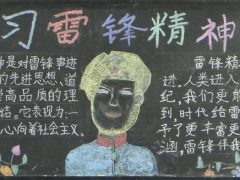 习雷锋精神
神是对雷锋事迹
的先进思想、道
崇高品质的理
括。它表现为:一
心向着社会主义,
雷锋精
进。人类进入
纪,我们更
到,时代给雷
予了更丰富更
涵,雷锋伴我